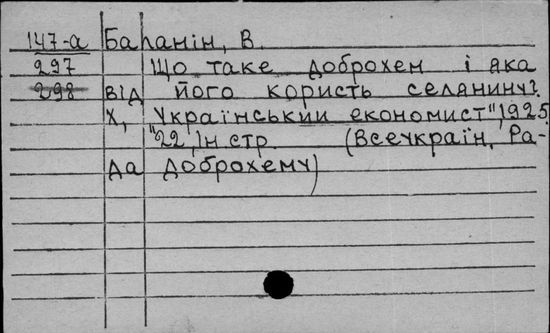 147-а Баланін, В.
297 Що таке доброхем і яка
298 від його користь селянину?
Х, Український економист", 1925,
"22, Ін стр. (Всеукраїн. Ра-
да Доброхему)